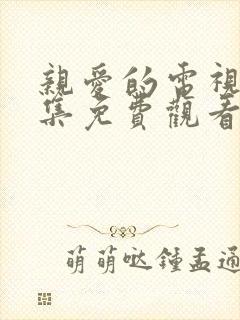 親愛的電視
集免費觀看
萌萌噠鍾孟通